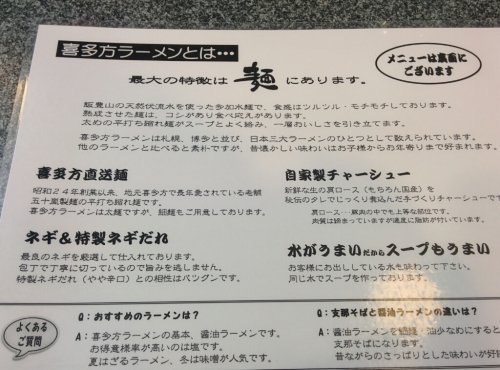 喜多方ラーメンとは・・・
メニューは裏面に
ございます
最大の特徴は 麺 にあります。
飯豊山の天然伏流水を使った多加水麺で、食感はツルツル・モチモチしております。
熟成させた麺は、コシがあり食べ応えがあります。
太めの平打ち縮れ麺がスープとよく絡み、一層おいしさを引き立てます。
喜多方ラーメンは札幌、博多と並び、日本三大ラーメンのひとつとして数えられています。
他のラーメンと比べると素朴ですが、昔懐かしい味わいはお子様からお年寄りまで好まれます。
喜多方直送麺
昭和24年創業以来、地元喜多方で長年愛されている老舗
五十嵐製麺の平打ち縮れ麺です。
喜多方ラーメンは太麺ですが、細麺もご用意しております。
自家製チャーシュー
新鮮な生の肩ロース(もちろん国産)を
秘伝のタレでじっくり煮込んだ手づくりチャーシューです
肩ロース・・・豚肉の中でも上等な部位です。
肉質は締まっていますが適度に脂肪が付いています。
ネギ&特製ネギだれ
最良のネギを厳選して仕入れております。
包丁で丁寧に切っているので旨みを逃しません。
特製ネギだれ(やや辛口)との相性はバツグンです。
水がうまいだからスープもうまい
お客様にお出ししている水も味わって下さい。
同じ水でスープを作っております。
よくある
ご質問
Q:おすすめのラーメンは?
A:喜多方ラーメンの基本、醤油ラーメンです。
お得意様率が高いのは塩です。
夏はざるラーメン、冬は味噌が人気です。
Q:支那そばと醤油ラーメンの違いは?
A:醤油ラーメンを細麺・油少なめにすると
支那そばになります。
昔ながらのさっぱりとした味わいが好